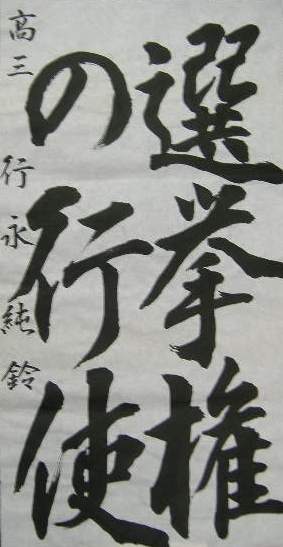 選挙権
の行使
高三 行永純鈴